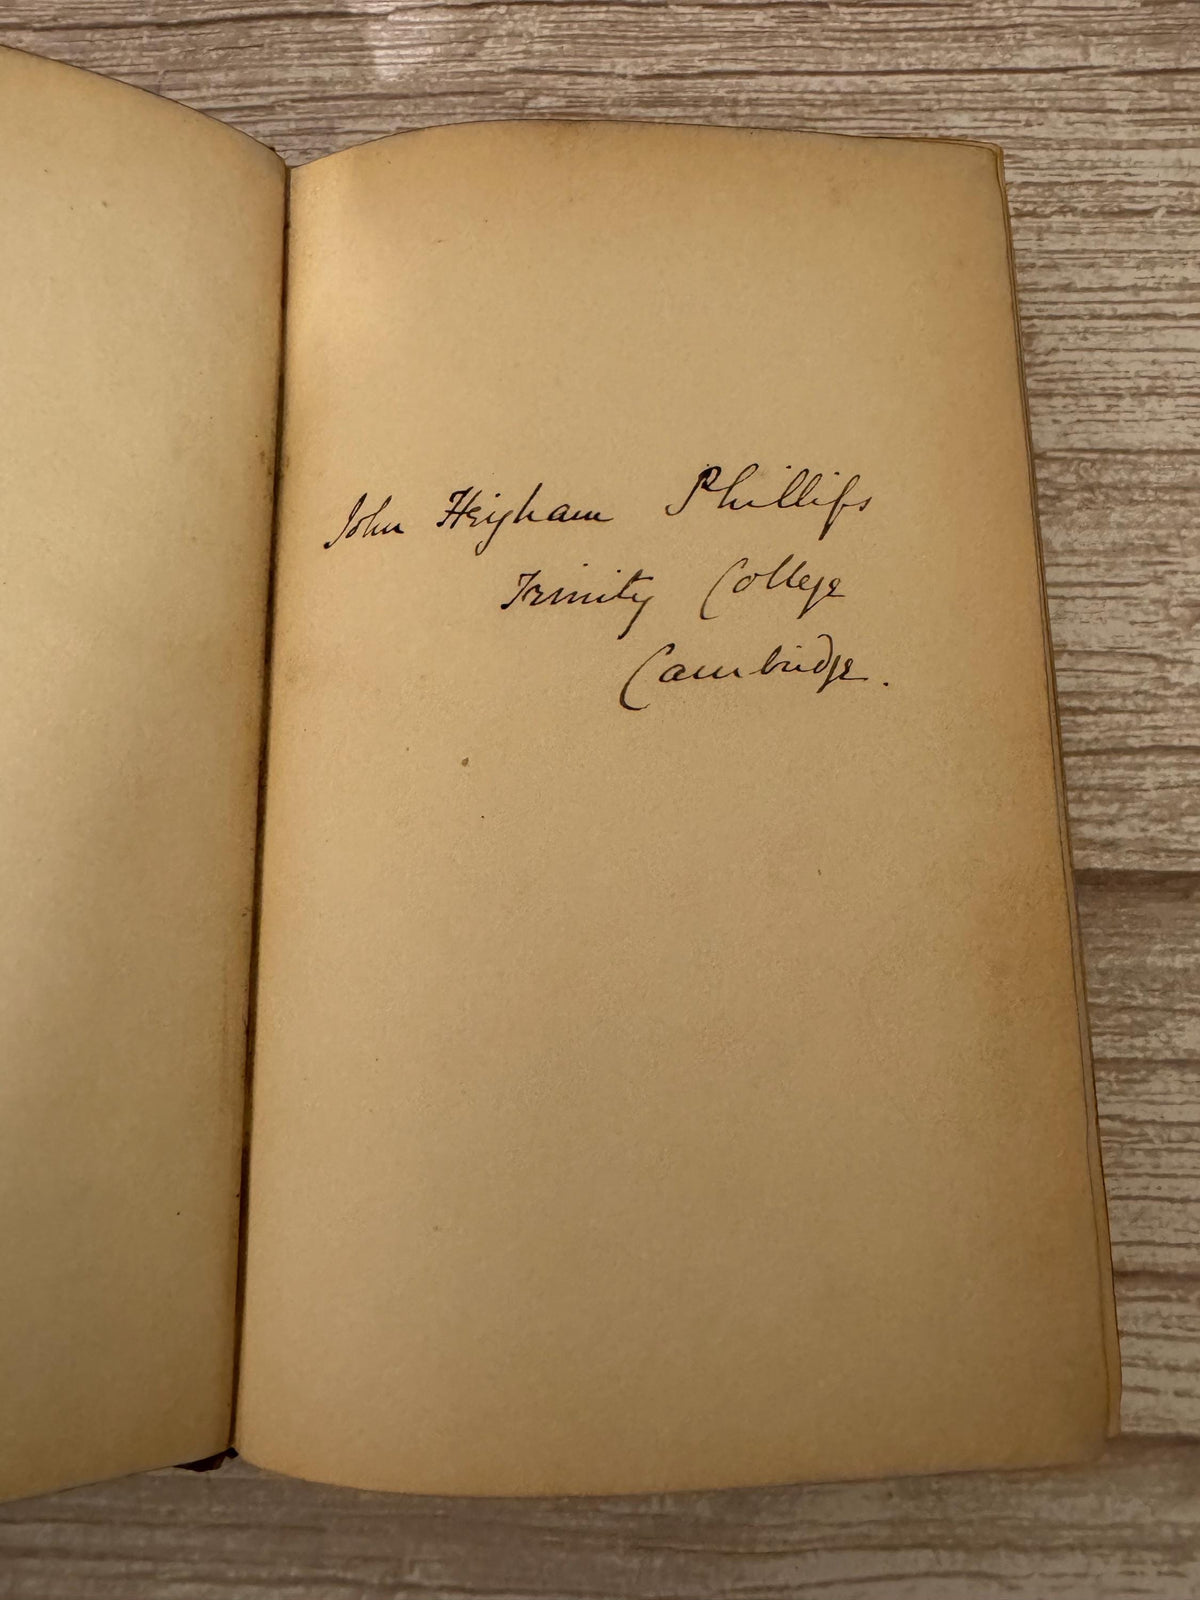 John Heigham Phillips
Trinity College
Cambridge.